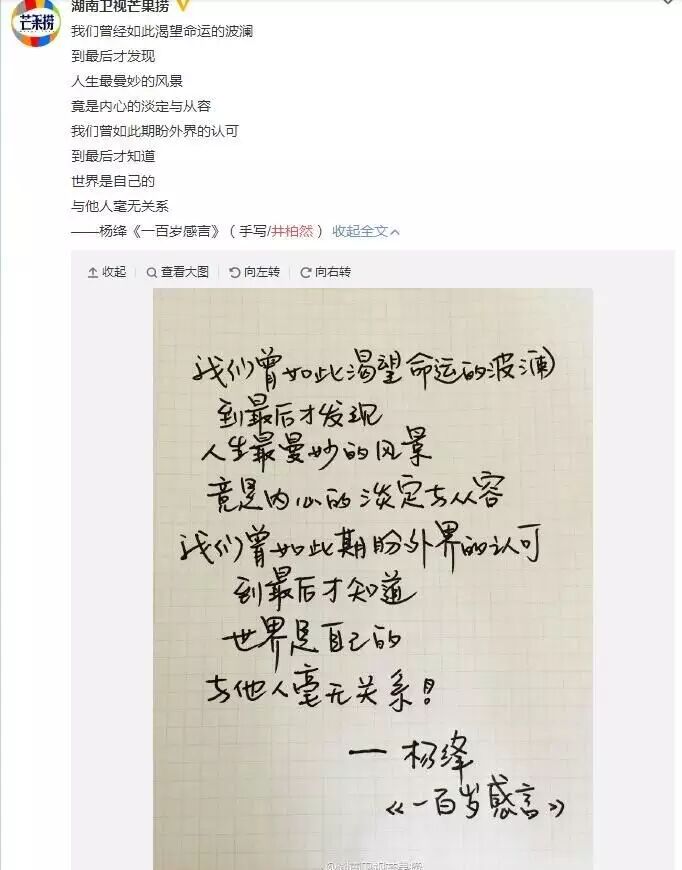 芒果捞
湖南卫视芒果捞
我们曾经如此渴望命运的波澜
到最后才发现
人生最曼妙的风景
竟是内心的淡定与从容
我们曾如此期盼外界的认可
到最后才知道
世界是自己的
与他人毫无关系
——杨绛《一百岁感言》（手写/井柏然） 收起全文
收起 查看大图 向左转 向右转
我们曾如此渴望命运的波澜
到最后才发现
人生最曼妙的风景
竟是内心的淡定与从容
我们曾如此期盼外界的认可
到最后才知道
世界是自己的
与他人毫无关系！
— 杨绛
《一百岁感言》